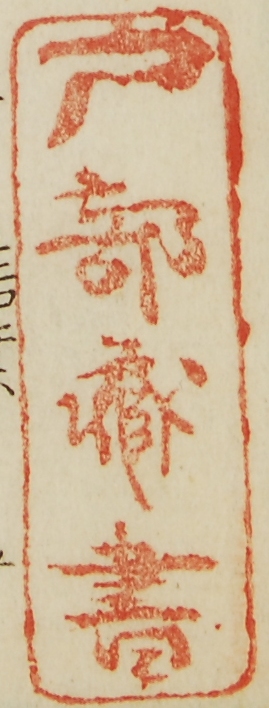 戸部藏書